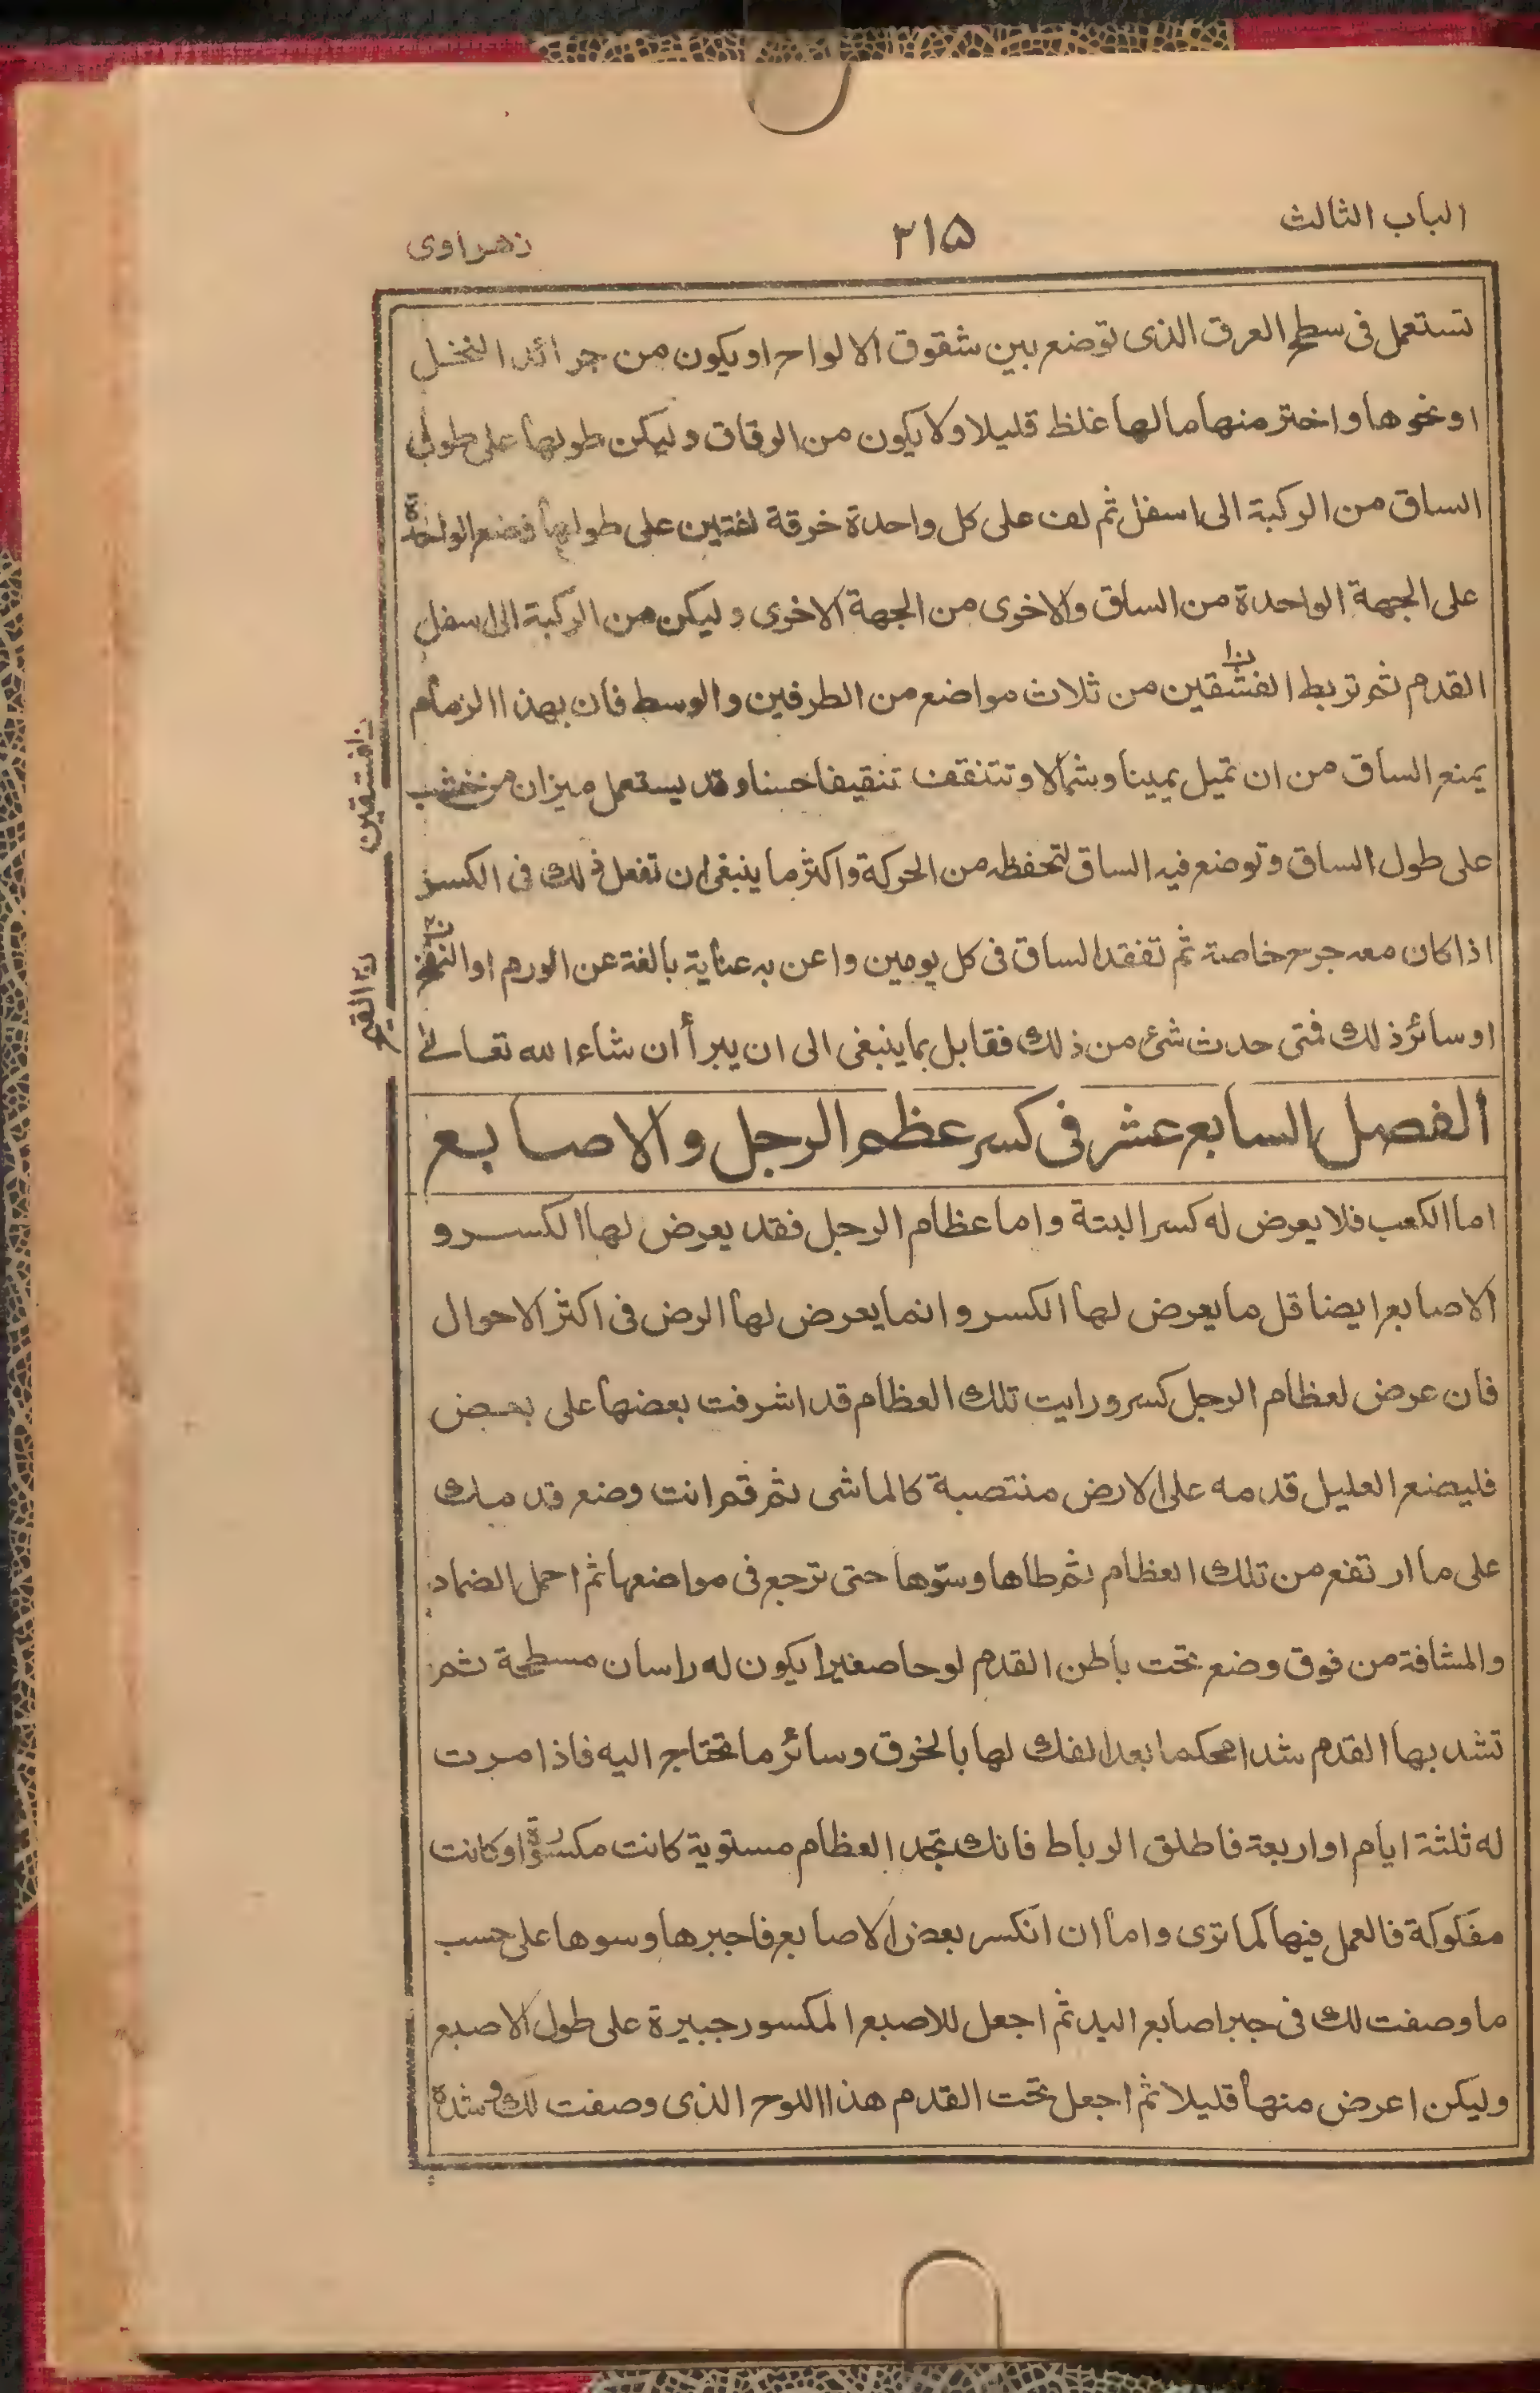 الباب الثالث
٣١٥
زهراوی
تستعمل فی سطح العرق الذی توضع بین شقوق الالواح او یکون من جرائد النخل
او نحوها واختر منها ما لها غلظ قلیلا ولا یکون من الرقاق ولیکن طولها علی طول
الساق من الرکبة الی اسفل ثم لف علی کل واحدة خرقة لفتین علی طولها فضع الواحدة
علی الجهة الواحدة من الساق والاخری من الجهة الاخری ولیکن من الرکبة الی اسفل
القدم ثم تربط الفشقین من ثلاث مواضع من الطرفین والوسط فان بهذا الزمام
یمنع الساق من ان تمیل یمینا وشمالا وتتنقف تنقیفا حسنا وقد یستعمل میزان من خشب
علی طول الساق وتوضع فیه الساق لتحفظه من الحرکة واکثر ما ینبغی ان تفعل ذلك فی الکسر
اذا کان معه جرح خاصة ثم تفقد الساق فی کل یومین واعن به عنایة بالغة عن الورم او النفخ
او سائر ذلك فمتی حدث شئ من ذلك فقابل بما ینبغی الی ان یبرأ ان شاء الله تعالے
الفصل السابع عشر فی کسر عظم الرجل والاصابع
اما الکعب فلا یعرض له کسر البتة واما عظام الرجل فقد یعرض لها الکسر و
الاصابع ایضا قل ما یعرض لها الکسر وانما یعرض لها الرض فی اکثر الاحوال
فان عرض لعظام الرجل کسر ورایت تلك العظام قد اشرفت بعضها علی بعض
فلیضع العلیل قدمه علی الارض منتصبة کالماشی ثم قم انت وضع قدمك
علی ما ارتفع من تلك العظام ثم طاها وسوّها حتی ترجع فی مواضعها ثم احمل الضماد
والمشافة من فوق وضع تحت باطن القدم لوحا صغیرا یکون له راسان مسطحة ثم
تشد بها القدم شدا محکما بعد الفك لها بالخرق وسائر ما تحتاج الیه فاذا مرت
له ثلثة ایام او اربعة فاطلق الرباط فانك تجد العظام مستویة کانت مکسورة او کانت
مفکوکة فالعمل فیها کما تری واما ان انکسر بعض الاصابع فاجبرها وسوها علی حسب
ما وصفت لك فی جبر اصابع الید ثم اجعل للاصبع المکسور جبیرة علی طول الاصبع
ولیکن اعرض منها قلیلا ثم اجعل تحت القدم هذا اللوح الذی وصفت لك وشدة